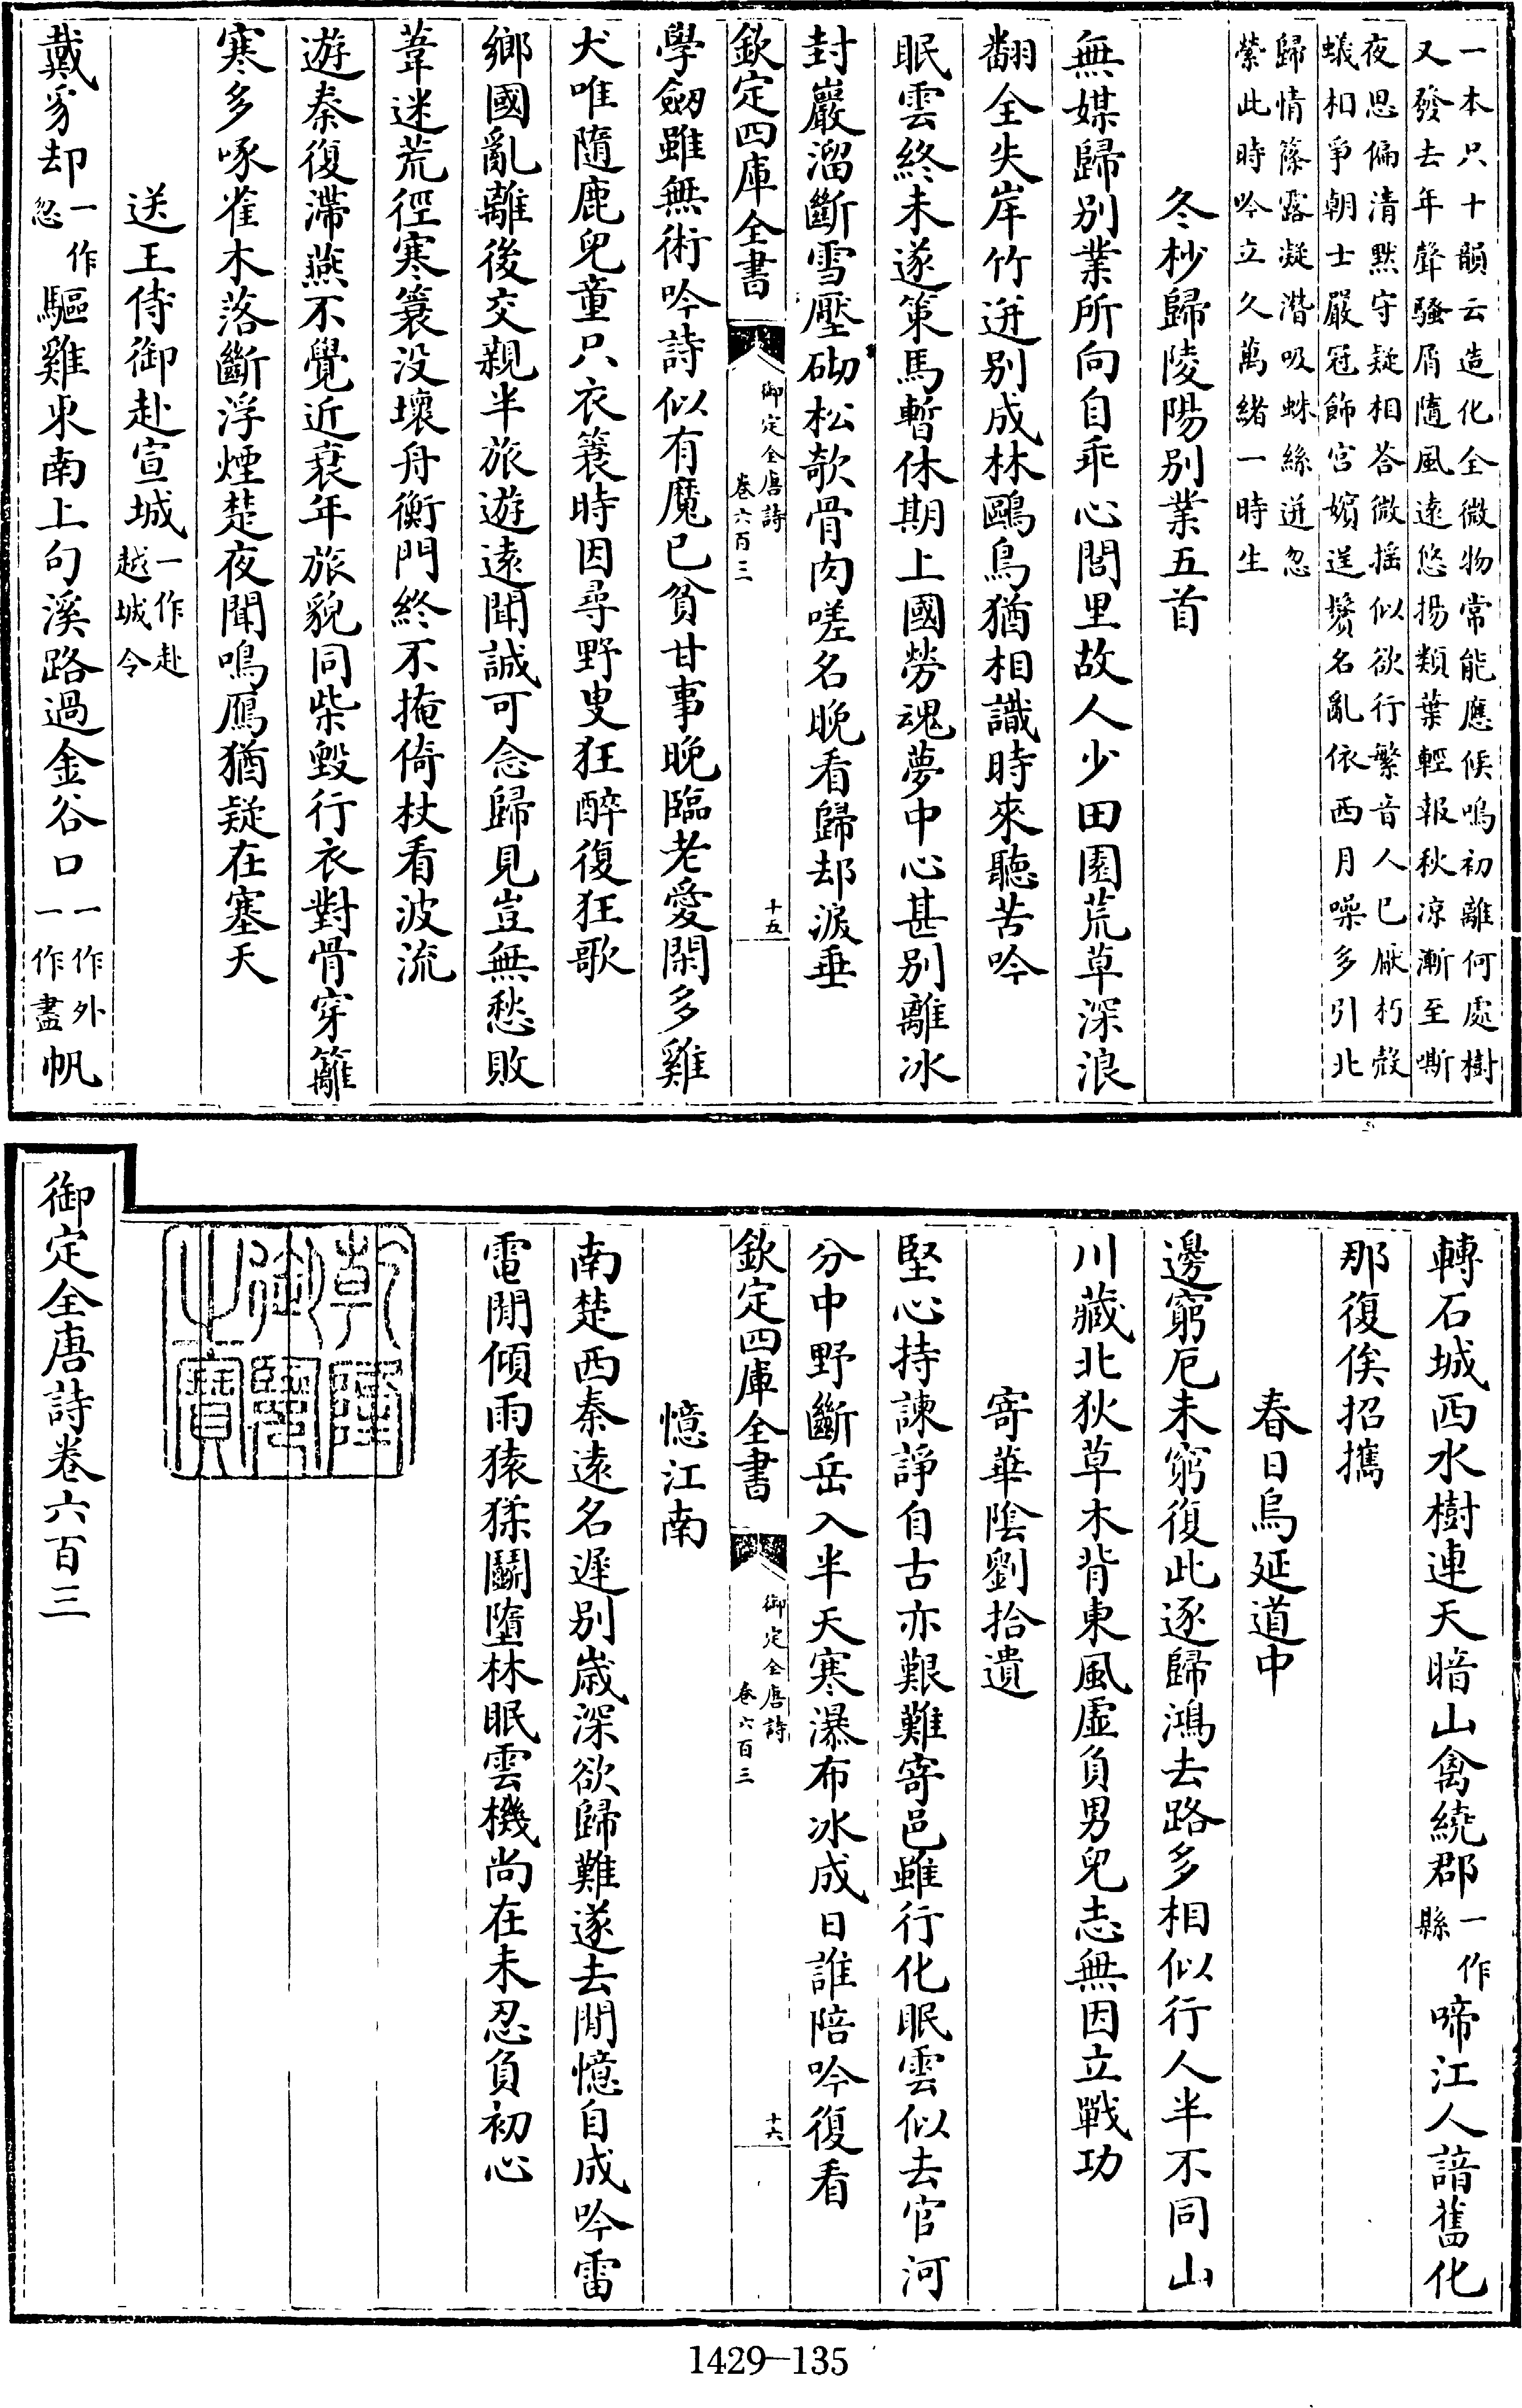 一本只十韻云造化全微物常能應候鳴初離何處樹
又發去年聲騷屑隨風遠悠揚類葉輕報秋凉漸至嘶
夜思偏清黙守疑相荅微揺似欲行繁音人已厭朽殻
蟻相爭朝士嚴冠飾宫嬪逞鬢名亂依西月噪多引北
歸情篠露凝濳吸蛛絲迸忽
縈此時吟立久萬緒一時生
冬杪歸陵陽别業五首
無媒歸别業所向自乖心閭里故人少田園荒草深浪
翻全失岸竹迸别成林鷗鳥猶相識時來聽苦吟
眠雲終未遂策馬暫休期上國勞魂夢中心甚别離冰
封巖溜斷雪壓砌松欹骨肉嗟名晚看歸却淚垂
欽定四庫全書
御定全唐詩
卷六百三
十五
學劒雖無術吟詩似有魔已貧甘事晚臨老愛閑多雞
犬唯隨鹿兒童只衣蓑時因尋野叟狂醉復狂歌
鄉國亂離後交親半旅遊遠聞誠可念歸見豈無愁敗
葦迷荒徑寒蓑没壞舟衡門終不掩倚杖看波流
遊秦復滯燕不覺近衰年旅貌同柴毁行衣對骨穿籬
寒多啄雀木落斷浮煙楚夜聞鳴鴈猶疑在塞天
送王侍御赴宣城一作赴越城令
戴豸却一作忽驅雞東南上句溪路過金谷口一作外一作盡帆
轉石城西水樹連天暗山禽繞郡一作縣啼江人諳舊化
那復俟招攜
春日烏延道中
邊窮厄未窮復此逐歸鴻去路多相似行人半不同山
川藏北狄草木背東風虛負男兒志無因立戰功
寄華陰劉拾遺
堅心持諫諍自古亦艱難寄邑雖行化眠雲似去官河
分中野斷岳入半天寒瀑布冰成日誰陪吟復看
欽定四庫全書
御定全唐詩
卷六百三
十六
憶江南
南楚西秦遠名遲别歲深欲歸難遂去閒憶自成吟雷
電閒傾雨猿猱鬬墮林眠雲機尚在未忍負初心
乾隆御覽之寶
御定全唐詩卷六百三
1429—135